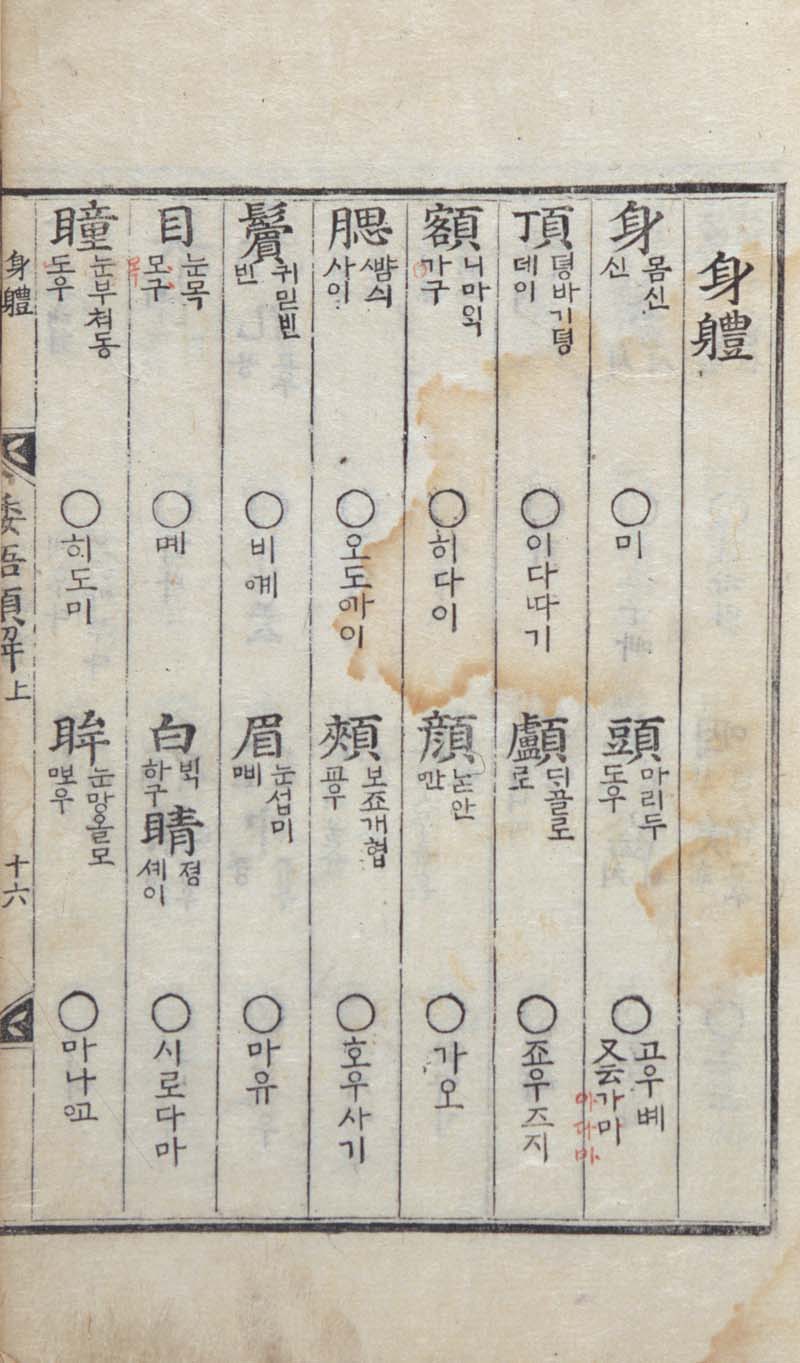 身軆
身 몸신 신 ○미 頭 마리두 도우 ○고우볘 又云가마 아다마
頂 뎡바기뎡 데이 ○이다따기 顱 뒤골로 로 ○죠우즈지
額 니마ᄋᆡᆨ 가구 ○히다이 顔 ᄂᆞᆺ안 ○가오
腮 ᄲᅣᆷ싀 사이 ○오도ᅁᅡ이 頰 보죠개협 교우 ○호우사기
鬢 귀믿빈 빈 ○비ᅁᅦ 眉 눈섭미 ᄆᅠ비 ○마유
目 눈목 모구 ○몌 白 ᄇᆡᆨ 하구 睛 졍 셰이 ○시로다마
瞳 눈부쳐동 도우 ○히도미 眸 눈망올모 ○마나ᅁᅩ
身軆
倭語類解 上
十六